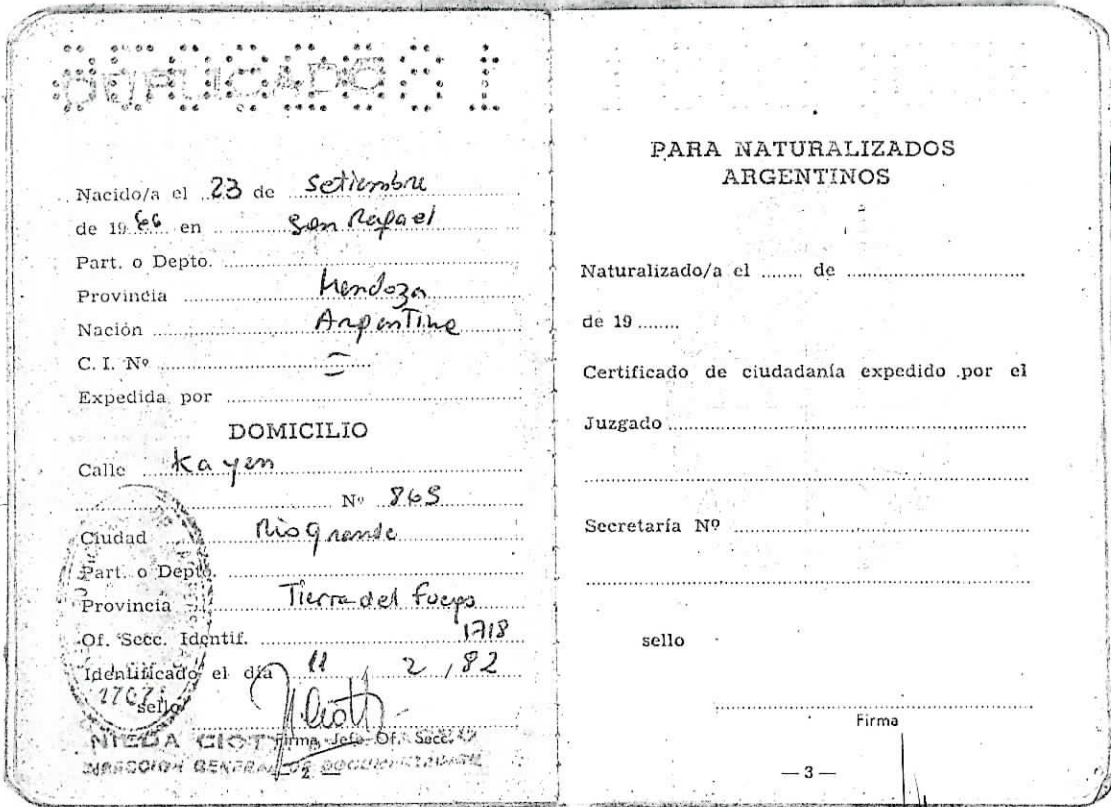 DUPLICADO
Nacido/a el 23 de setiembre
de 1966 en San Rafael
Part. o Depto.
Provincia Mendoza
Nación Argentina
C. I. Nº —
Expedida por
DOMICILIO
Calle Kayen
Nº 865
Ciudad Rio Grande
Part. o Depto.
Provincia Tierra del Fuego
Of. Secc. Identif. 1718
Identificado el día 11 2, 82
sello
Firma Jefe Of. Secc.
NILDA CIOTTI
DIRECCION GENERAL DE
— 2 —
PARA NATURALIZADOS
ARGENTINOS
Naturalizado/a el ........ de
de 19 ........
Certificado de ciudadanía expedido por el
Juzgado
Secretaría Nº
sello
Firma
— 3 —